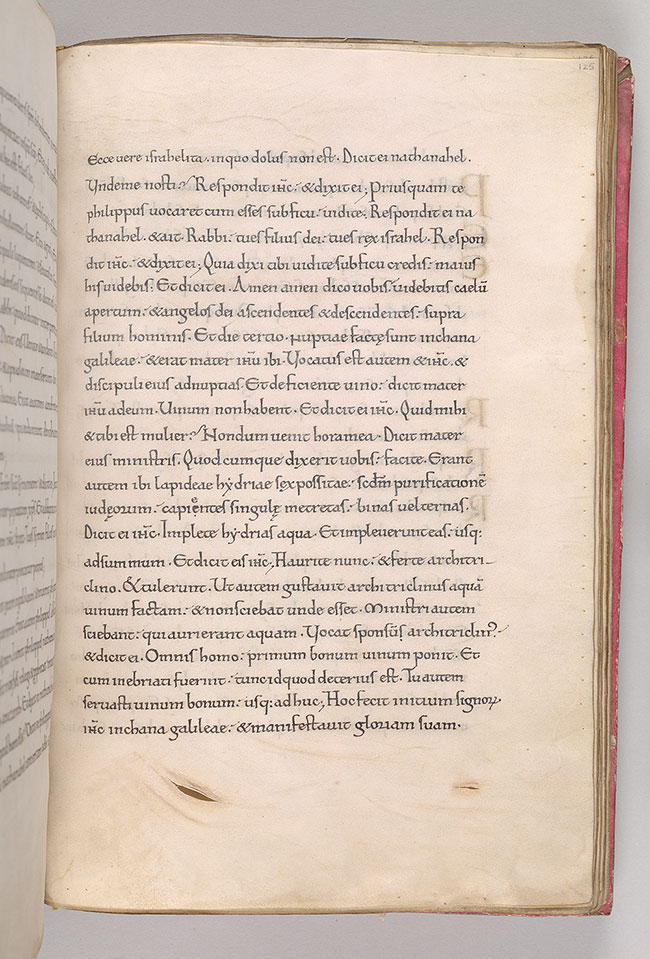 125
Ecce uere israhelita. in quo dolus non est. Dicit ei nathanahel.
Unde me nosti? Respondit ihc: & dixit ei; Priusquam te
philippus uocaret cum esses sub ficu: uidi te. Respondit ei na
thanahel. & ait. Rabbi: tu es filius dei: tu es rex israhel. Respon
dit ihc: & dixit ei; Quia dixi tibi uidi te sub ficu credis: maius
his uidebis. Et dicit ei. Amen amen dico uobis: uidebitis caelū
apertum: & angelos dei ascendentes & descendentes: supra
filium hominis. Et die tertio. nuptiae factę sunt in chana
galileae: & erat mater ihu ibi. Vocatus est autem & ihc. &
discipuli eius ad nuptias. Et deficiente uino: dicit mater
ihu ad eum. Uinum non habent. Et dicit ei ihc. Quid mihi
& tibi est mulier? Nondum uenit hora mea. Dicit mater
eius ministris. Quodcumque dixerit uobis: facite. Erant
autem ibi lapideae hydriae sex possitae: scdm purificationē
iudęorum: capientes singulę metretas: binas uel ternas.
Dicit ei ihc. Implete hydrias aqua. Et impleuerunt eas: usq:
ad summum. Et dicit eis ihc; Haurite nunc: & ferte architri-
clino. & tulerunt. Ut autem gustauit architriclinus aquā
uinum factam: & non sciebat unde esset. Ministri autem
sciebant: qui aurierant aquam. Vocat sponsūs architriclin'.
& dicit ei. Omnis homo: primum bonum uinum ponit. Et
cum inebriati fuerint: tunc id quod deterius est. Tu autem
seruasti uinum bonum: usq: adhuc; Hoc fecit initium signoꝝ.
ihc in chana galileae: & manifestauit gloriam suam.